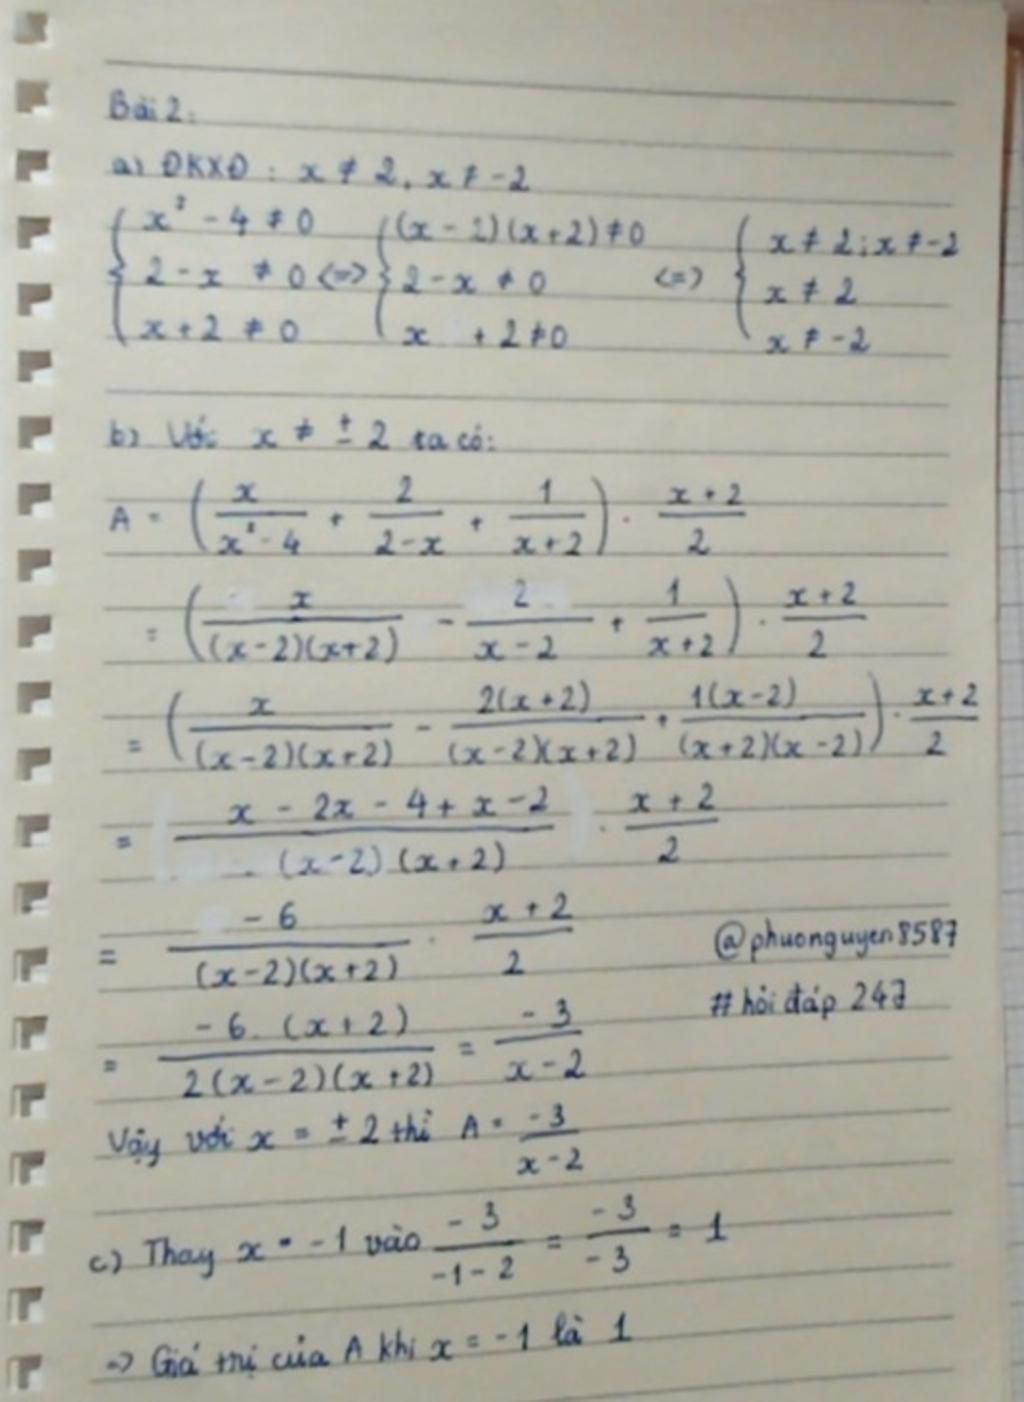 Bài 2:
a) ĐKXĐ : x ≠ 2, x ≠ -2
{ x² - 4 ≠ 0 { (x - 2)(x+2) ≠ 0 { x ≠ 2; x ≠ -2
{ 2 - x ≠ 0 <=> { 2 - x ≠ 0 <=> { x ≠ 2
{ x + 2 ≠ 0 { x + 2 ≠ 0 { x ≠ -2
b) Với x ≠ ± 2 ta có:
A = ( x/(x² - 4) + 2/(2 - x) + 1/(x + 2) ) . (x + 2)/2
= ( x/((x-2)(x+2)) - 2/(x - 2) + 1/(x + 2) ) . (x + 2)/2
= ( x/((x-2)(x+2)) - 2(x + 2)/((x-2)(x+2)) + 1(x-2)/((x+2)(x-2)) ) . (x+2)/2
= (x - 2x - 4 + x - 2)/((x-2)(x+2)) . (x + 2)/2
= -6/((x-2)(x+2)) . (x + 2)/2 @phuonguyen8587
= -6.(x+2)/(2(x-2)(x+2)) = -3/(x-2) #hỏi đáp 247
Vậy với x = ± 2 thì A = -3/(x-2)
c) Thay x = -1 vào -3/(-1-2) = -3/-3 = 1
=> Giá trị của A khi x = -1 là 1